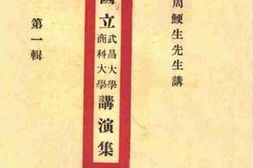 周鯁生先生講
國立武昌大學商科大學講演集
第一輯